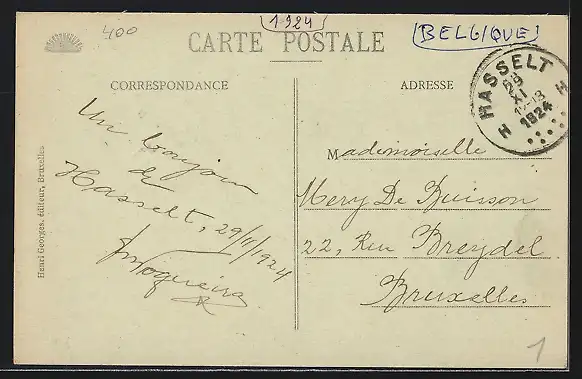 400
1924
(BELGIQUE)
CARTE POSTALE
CORRESPONDANCE
ADRESSE
HASSELT
29
XI
1924
H H
Un bonjour
de
Hasselt, 29/11/1924
Mademoiselle
Mery De Buisson
22, Rue Breydel
Bruxelles
Henri Georges, éditeur, Bruxelles
1